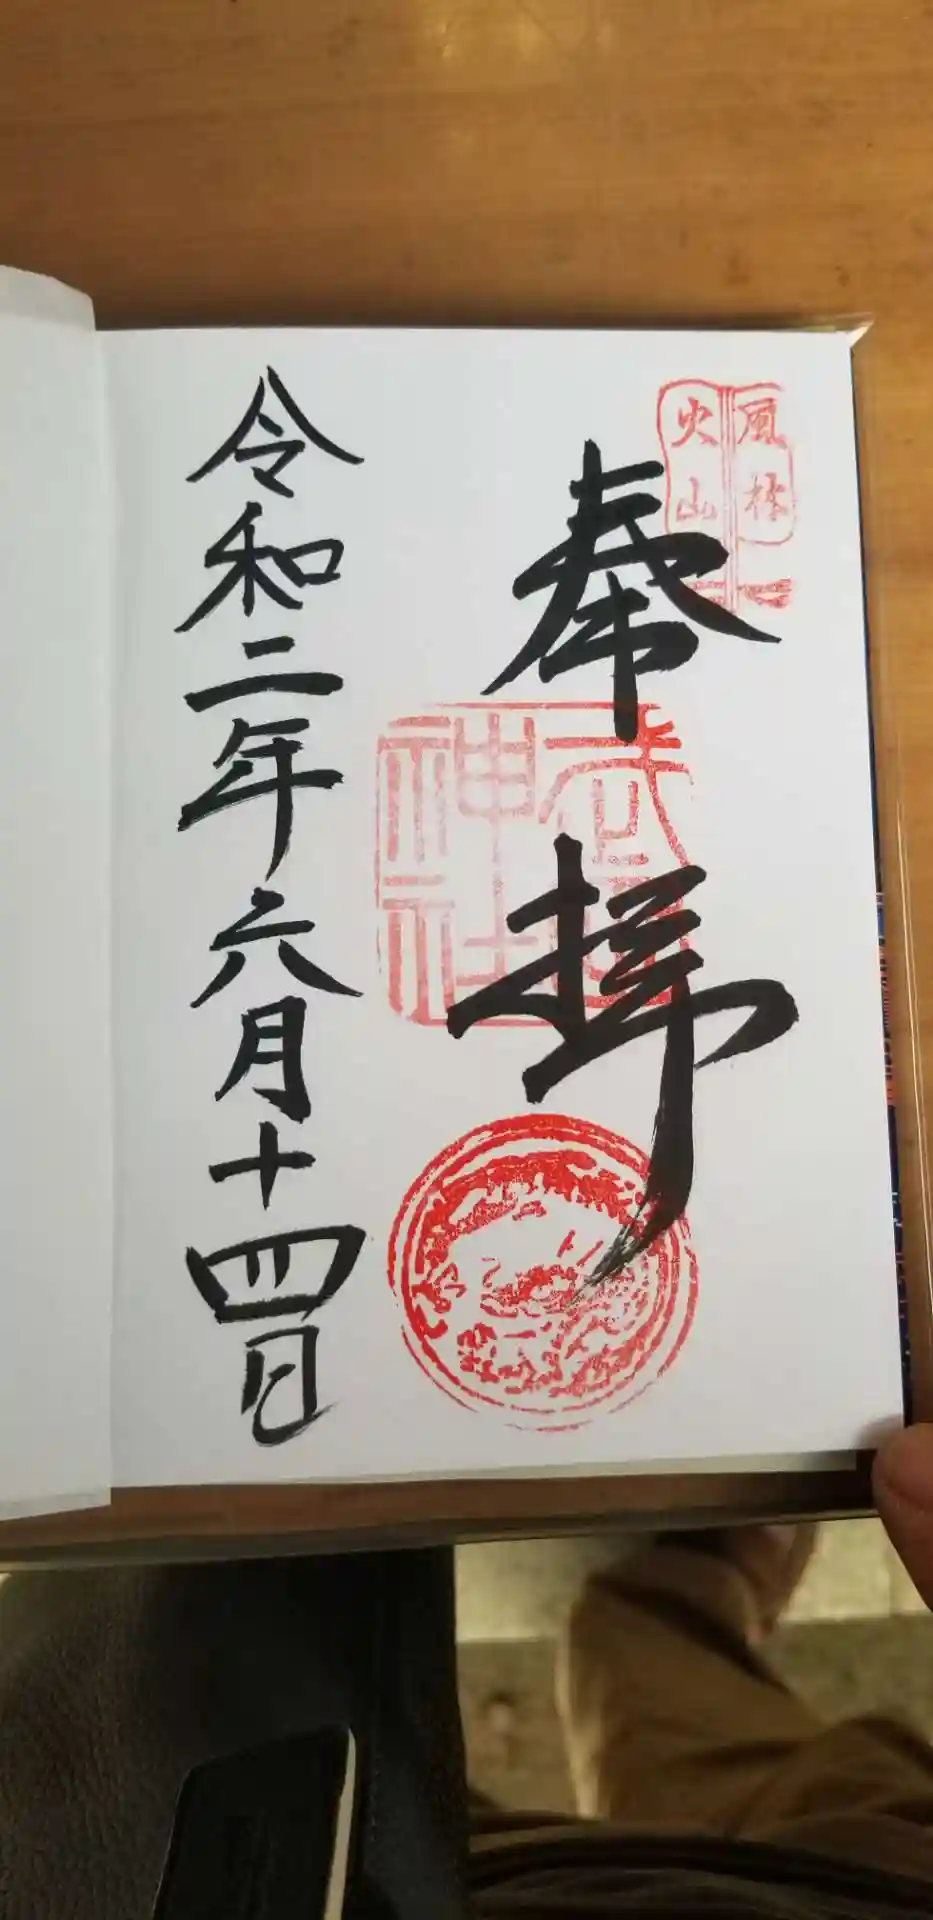 奉拝
風林
火山
武田
神社
令和二年六月十四日